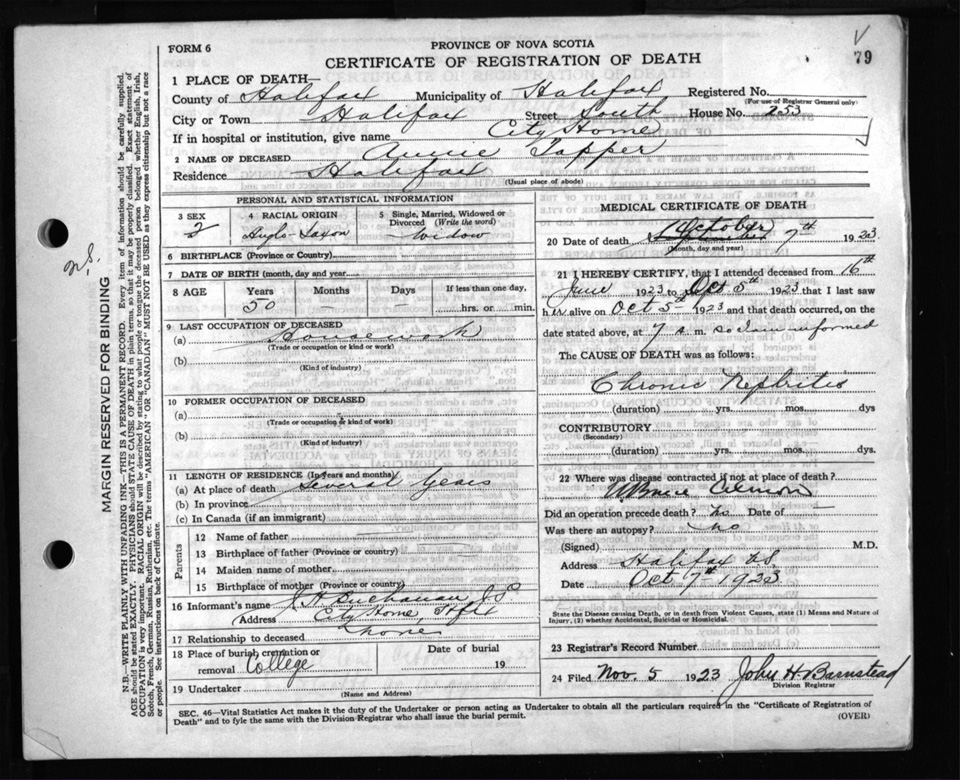 FORM 6
PROVINCE OF NOVA SCOTIA
CERTIFICATE OF REGISTRATION OF DEATH
79
1 PLACE OF DEATH—
County of Halifax Municipality of Halifax Registered No.
(For use of Registrar General only)
City or Town Halifax Street South House No. 253
If in hospital or institution, give name City Home
2 NAME OF DECEASED Annie Tapper
Residence Halifax
(Usual place of abode)
PERSONAL AND STATISTICAL INFORMATION
3 SEX
4 RACIAL ORIGIN Anglo-Saxon
5 Single, Married, Widowed or Divorced (Write the word) Widow
6 BIRTHPLACE (Province or Country)
7 DATE OF BIRTH (month, day and year)
8 AGE Years Months Days If less than one day,
50 — — hrs. or min.
9 LAST OCCUPATION OF DECEASED
(a) Housework
(Trade or occupation or kind or work)
(b)
(Kind of industry)
10 FORMER OCCUPATION OF DECEASED
(a)
(Trade or occupation or kind of work)
(b)
(Kind of industry)
11 LENGTH OF RESIDENCE (In years and months)
(a) At place of death Several Years
(b) In province
(c) In Canada (if an immigrant)
Parents
12 Name of father
13 Birthplace of father (Province or country)
14 Maiden name of mother
15 Birthplace of mother (Province or country)
16 Informant's name Buchanan
Address City Home, Hfx
17 Relationship to deceased none
18 Place of burial, cremation or removal College
Date of burial 19
19 Undertaker
(Name and Address)
MEDICAL CERTIFICATE OF DEATH
20 Date of death October 7th 1923
(Month, day and year)
21 I HEREBY CERTIFY, that I attended deceased from 16th
June 1923 to Oct 5th 1923 that I last saw
h alive on Oct 5th 1923 and that death occurred, on the
date stated above, at 7 a m. so I am informed
The CAUSE OF DEATH was as follows:
Chronic Nephritis
(duration) yrs. mos. dys
CONTRIBUTORY
(Secondary)
(duration) yrs. mos. dys.
22 Where was disease contracted if not at place of death?
Almon
Did an operation precede death? no Date of —
Was there an autopsy? no
(Signed) M.D.
Address Halifax N.S.
Date Oct 7th 1923
State the Disease causing Death, or in death from Violent Causes, state (1) Means and Nature of Injury, (2) whether Accidental, Suicidal or Homicidal.
23 Registrar's Record Number
24 Filed Nov. 5 1923 John H. Barnstead
Division Registrar
SEC. 46—Vital Statistics Act makes it the duty of the Undertaker or person acting as Undertaker to obtain all the particulars required in the "Certificate of Registration of
Death" and to fyle the same with the Division Registrar who shall issue the burial permit.
(OVER)
N.S.
MARGIN RESERVED FOR BINDING
N.B.—WRITE PLAINLY WITH UNFADING INK—THIS IS A PERMANENT RECORD. Every item of information should be carefully supplied.
AGE should be stated EXACTLY. PHYSICIANS should STATE CAUSE OF DEATH in plain terms, so that it may be properly classified. Exact statement of
OCCUPATION is very important. RACIAL ORIGIN will be described by stating to what people or tongue the deceased person belonged, whether English, Irish,
Scotch, French, German, Russian, Ruthenian, etc. The terms "AMERICAN" OR "CANADIAN" MUST NOT BE USED as they express citizenship but not a race
or people. See instructions on back of Certificate.